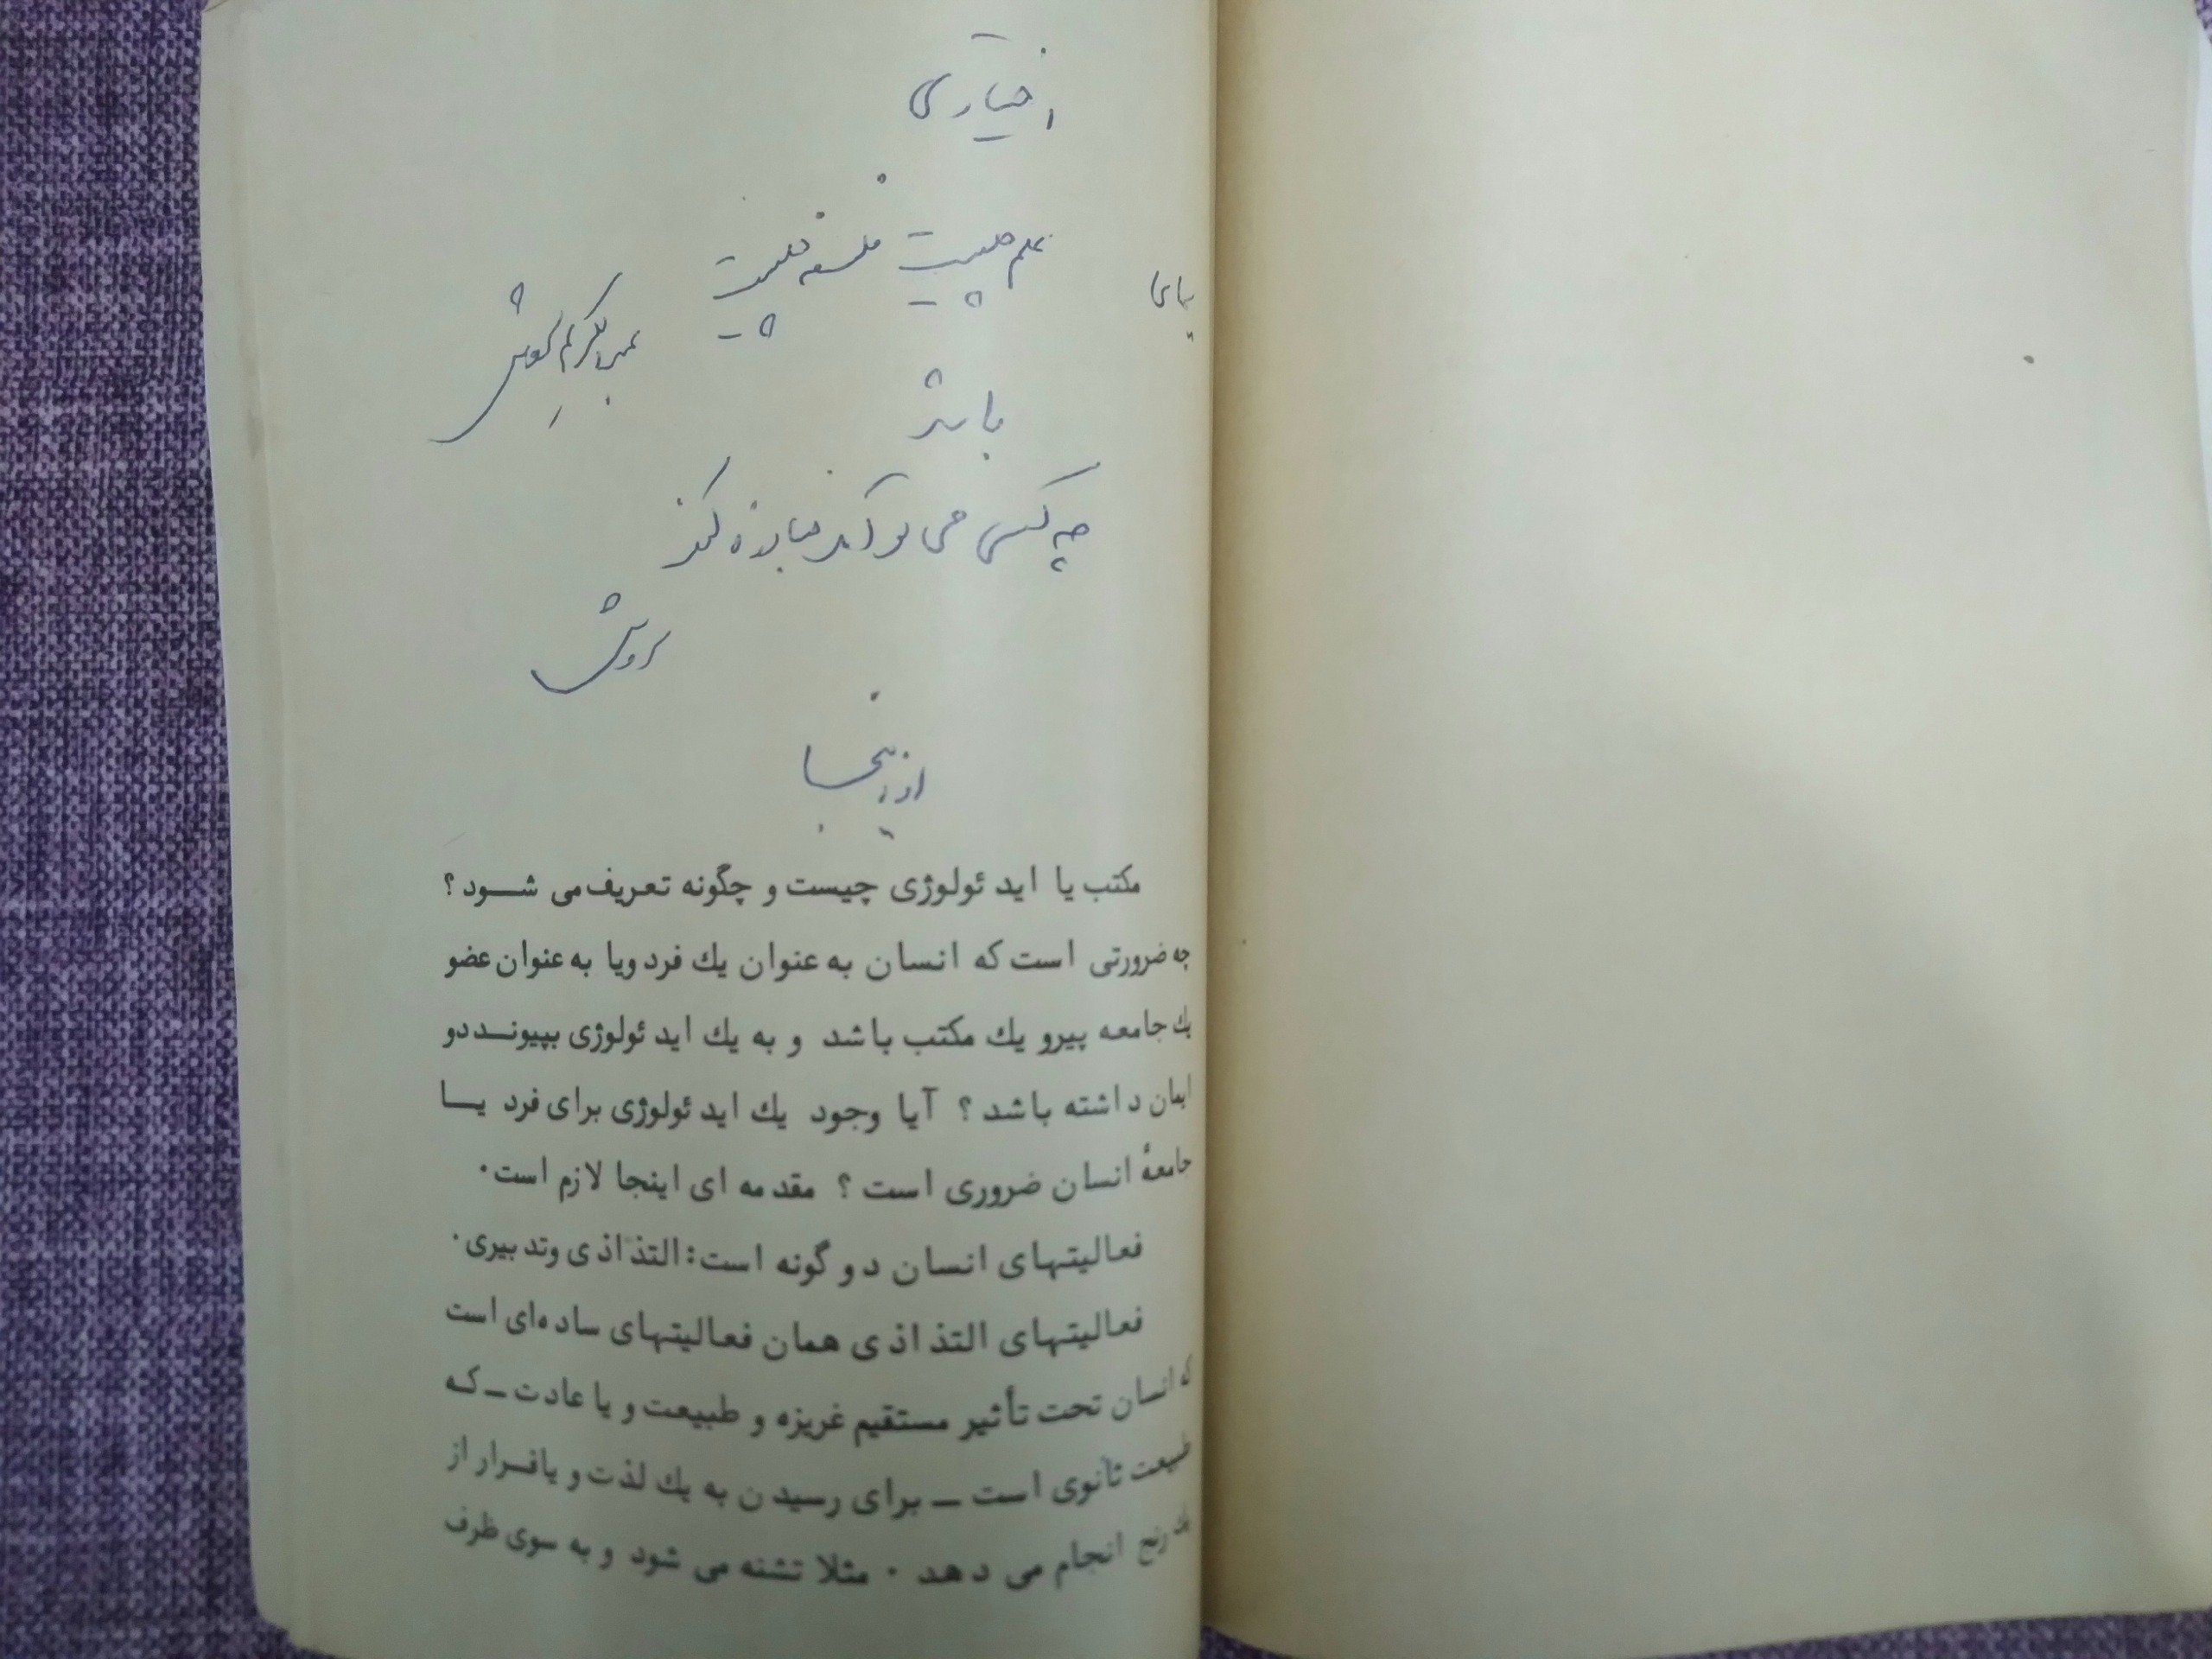 اختیاری
علم چیست فلسفه چیست
عبدالکریم سروش
باشد
چه کسی می تواند مبارزه کند
سروش
ازینجا
مکتب یا اید ئولوژی چیست و چگونه تعریف می شود ؟
چه ضرورتی است که انسان به عنوان یك فرد ویا به عنوان عضو
یك جامعه پیرو یك مکتب باشد و به یك اید ئولوژی بپیوندد و
ایمان داشته باشد ؟ آیا وجود یك اید ئولوژی برای فرد یا
جامعهٔ انسان ضروری است ؟ مقدمه ای اینجا لازم است .
فعالیتهای انسان دو گونه است : التذاذی وتدبیری .
فعالیتهای التذاذی همان فعالیتهای ساده‌ای است
که انسان تحت تأثیر مستقیم غریزه و طبیعت و یا عادت ـ که
طبیعت ثانوی است ـ برای رسیدن به یك لذت و یا فرار از
یك رنج انجام می دهد . مثلا تشنه می شود و به سوی ظرف